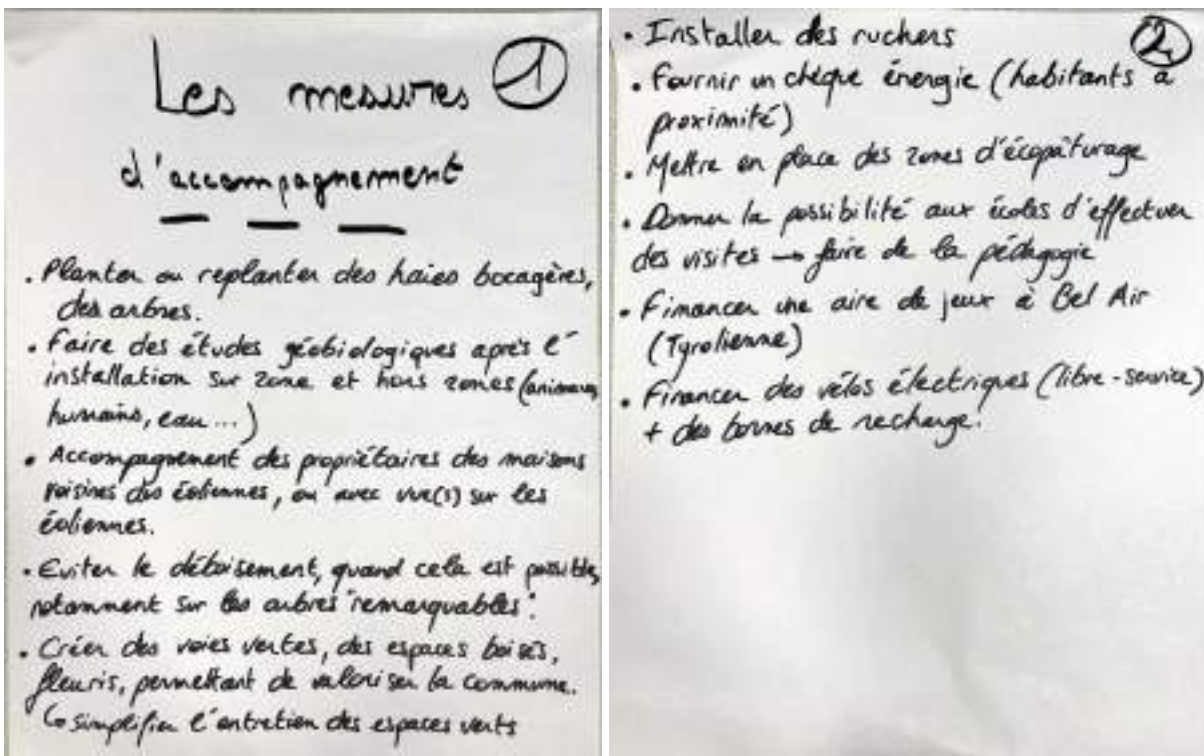 Les mesures ①
d'accompagnement
• Planter ou replanter des haies bocagères,
des arbres.
• Faire des études géobiologiques après l'
installation sur zone et hors zones (animaux,
humains, eau ...)
• Accompagnement des propriétaires des maisons
voisines des éoliennes, ou avec vue(s) sur les
éoliennes.
• Eviter le déboisement, quand cela est possible,
notamment sur les arbres "remarquables".
• Créer des voies vertes, des espaces boisés,
fleuris, permettant de valoriser la commune.
↳ simplifier l'entretien des espaces verts
②
• Installer des ruchers
• Fournir un chèque énergie (habitants à
proximité)
• Mettre en place des zones d'écopâturage
• Donner la possibilité aux écoles d'effectuer
des visites → faire de la pédagogie
• Financer une aire de jeux à Bel Air
(Tyrolienne)
• Financer des vélos électriques (libre-service)
+ des bornes de recharge.